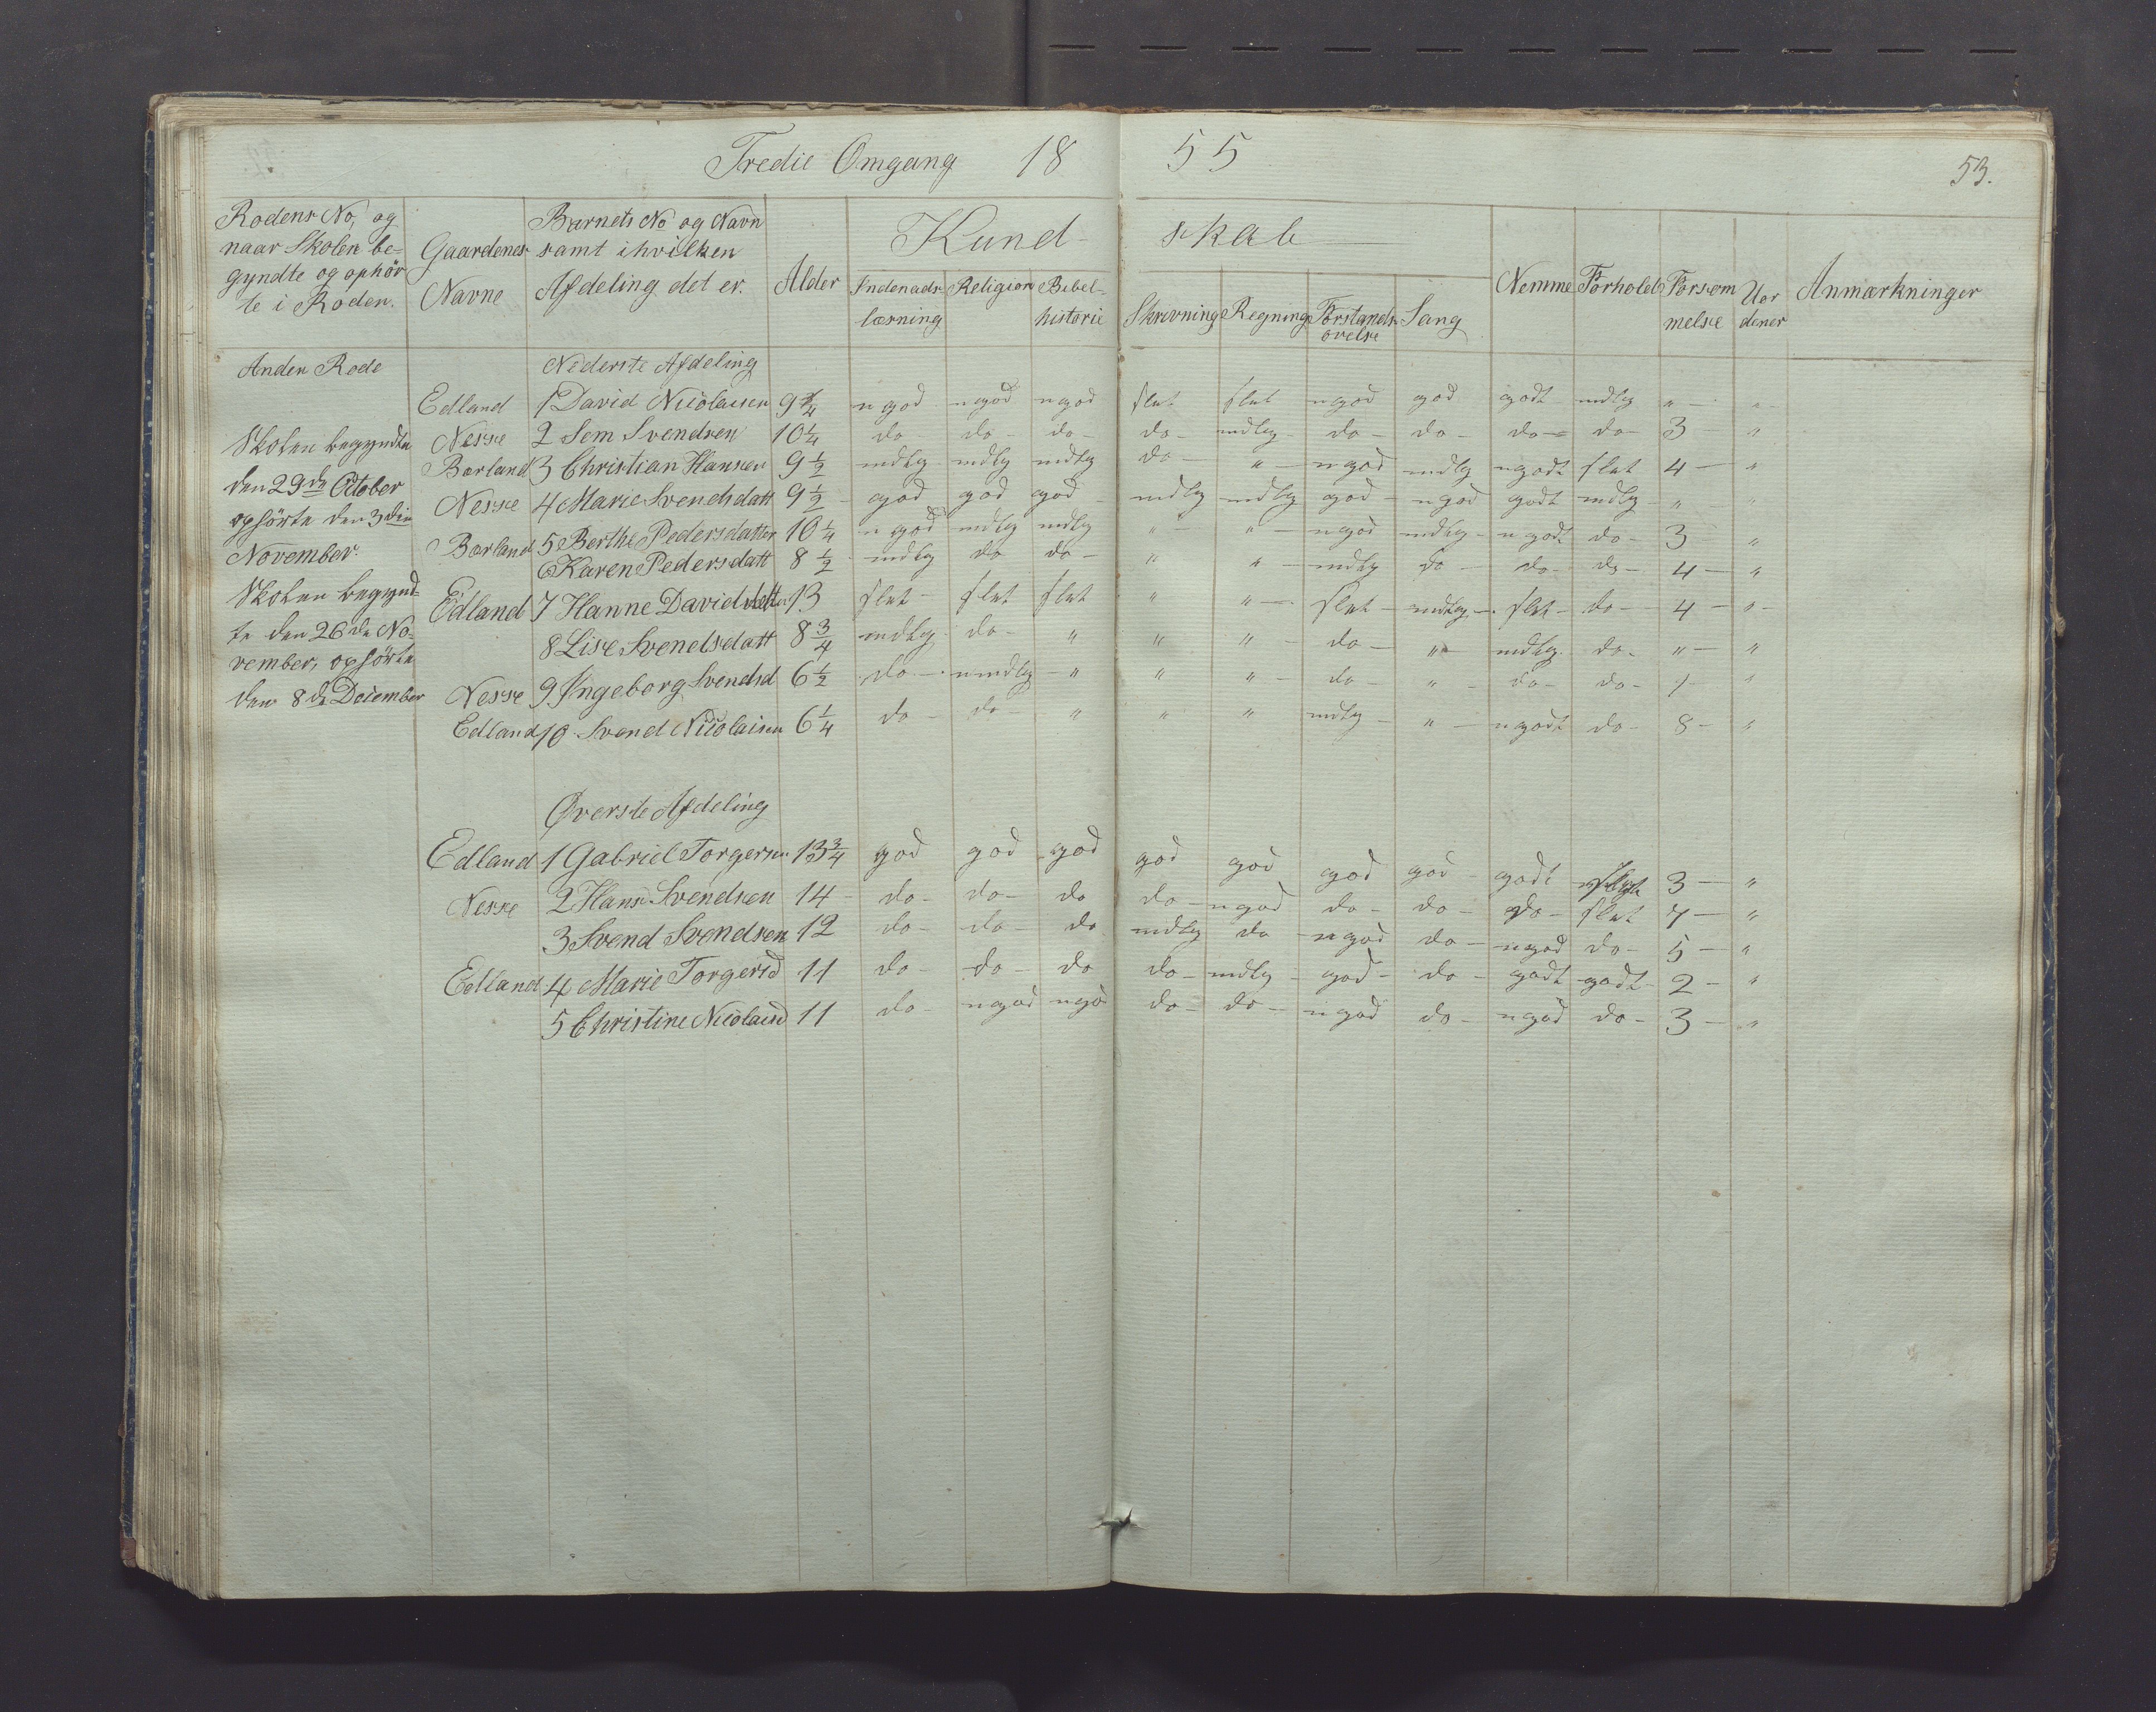 Tredie Omgang 18 55
53.
Rodens No, og
naar Skolen be-
gyndte og ophör
te i Roden.
Gaardenes
Navne
Barnets No og Navn
samt i hvilken
Afdeling det er.
Alder
Kund- skab
Indenads-
læsning
Religion
Bibel-
historie
Skrivning
Regning
Forstands-
øvelse
Sang
Nemme
Forhold
Forsøm
melse
Uor
dener
Anmærkninger
Anden Rode
Nederste Afdeling
Skolen begyndte
den 29de October
ophörte den 3die
November.
Skolen begynd-
te den 26de No-
vember, ophörte
den 8de December
Edland 1 David Nicolaisen 9 3/4 ngod ngod ngod slet slet ngod god godt mdlg " "
Nesse 2 Sem Svendsen 10 1/4 do do do do mdlg do do do do 3 "
Borland 3 Christian Hansen 9 1/2 mdlg mdlg mdlg do " ngod mdlg ngodt slet 4 "
Nesse 4 Marie Svendsdatt 9 1/2 god god god mdlg mdlg god ngod godt mdlg " "
Borland 5 Berthe Pedersdatter 10 1/4 ngod mdlg mdlg " " ngod mdlg ngodt do 3 "
6 Karen Pedersdatt 8 1/2 mdlg do do " " mdlg do do do 4 "
Edland 7 Hanne Davidsdatter 13 slet slet slet " " slet mdlg slet do 4 "
8 Lise Svendsdatt 8 3/4 mdlg do " " " do " mdlg do " "
Nesse 9 Ingeborg Svendsd 6 1/2 do nmdlg " " " do " do do 1 "
Edland 10 Svend Nicolaisen 6 1/4 do do " " " mdlg " ngodt do 8 "
Øverste Afdeling
Edland 1 Gabriel Torgersen 13 3/4 god god god god god god god godt 3 "
Nesse 2 Hans Svendsen 14 do do do do ngod do do do slet 7 "
3 Svend Svendsen 12 do do do mdlg do ngod do ngod do 5 "
Edland 4 Marie Torgersd 11 do do do do mdlg god do godt godt 2 "
5 Christine Nicolaisd 11 do ngod ngod do do ngod do ngod do 3 "